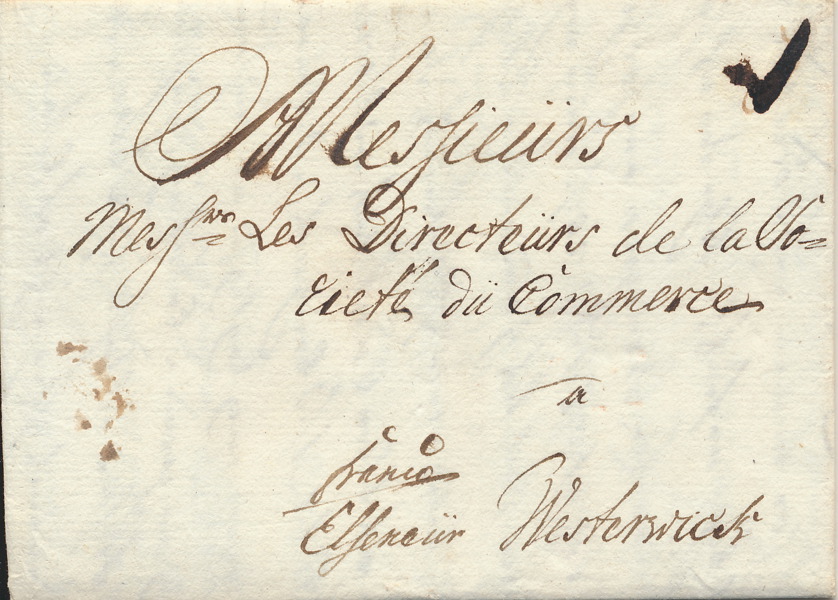 Messieürs
Messrs Les Directeürs de la So=
cieté dü Commerce
a
franco
Elseneür Westerwick